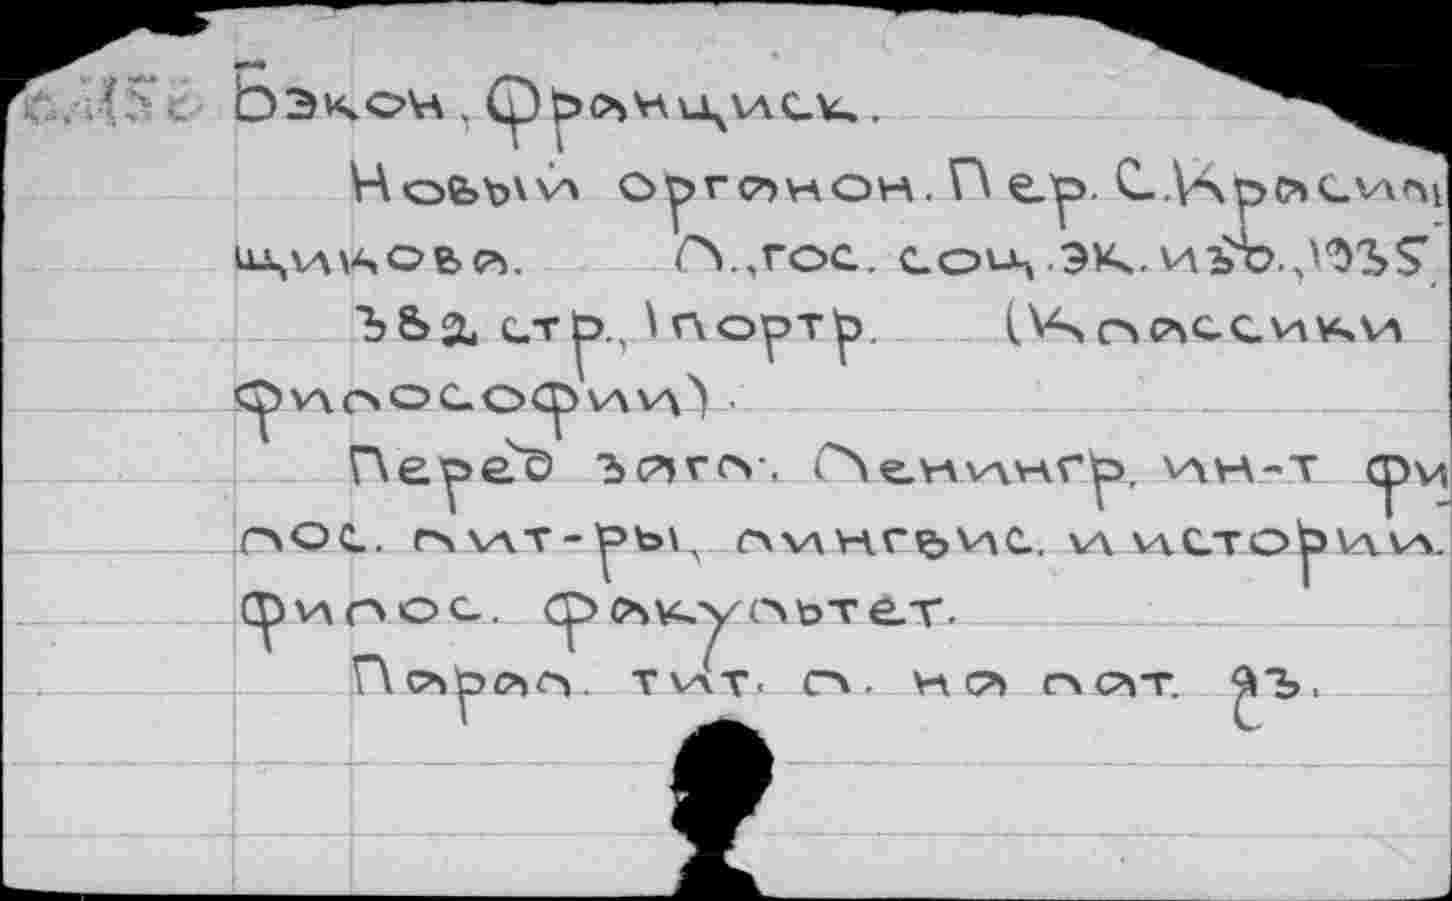 Бэкон, Франциск.
Новый органон. Пер. С. Красиль
щикова. Л., гос. соц.эк. изд., 1935
382 стр., 1 портр. (Классики
философии).
Перед загл.: Ленингр. ин-т фи-
лос. лит-ры, лингвис. и истории.
филос. факультет.
Парал. тит. л. на лат. яз.